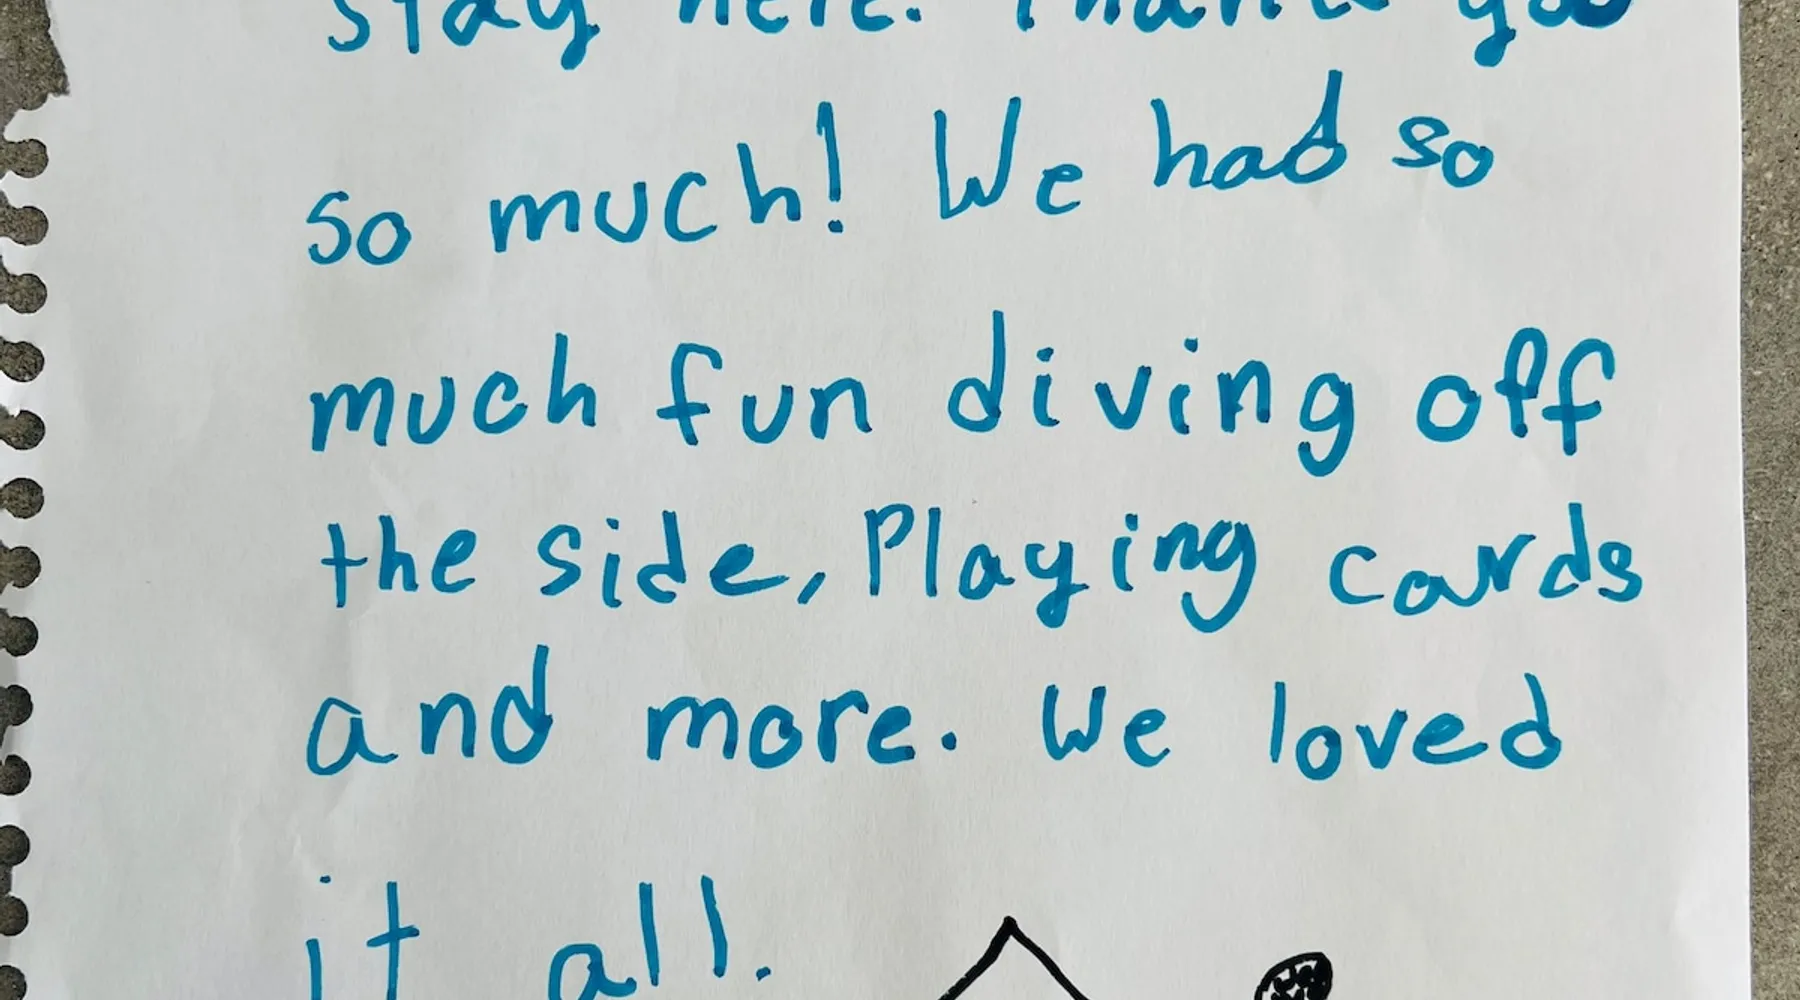 stay here. Thank you
so much! We had so
much fun diving off
the side, Playing cards
and more. We loved
it all.